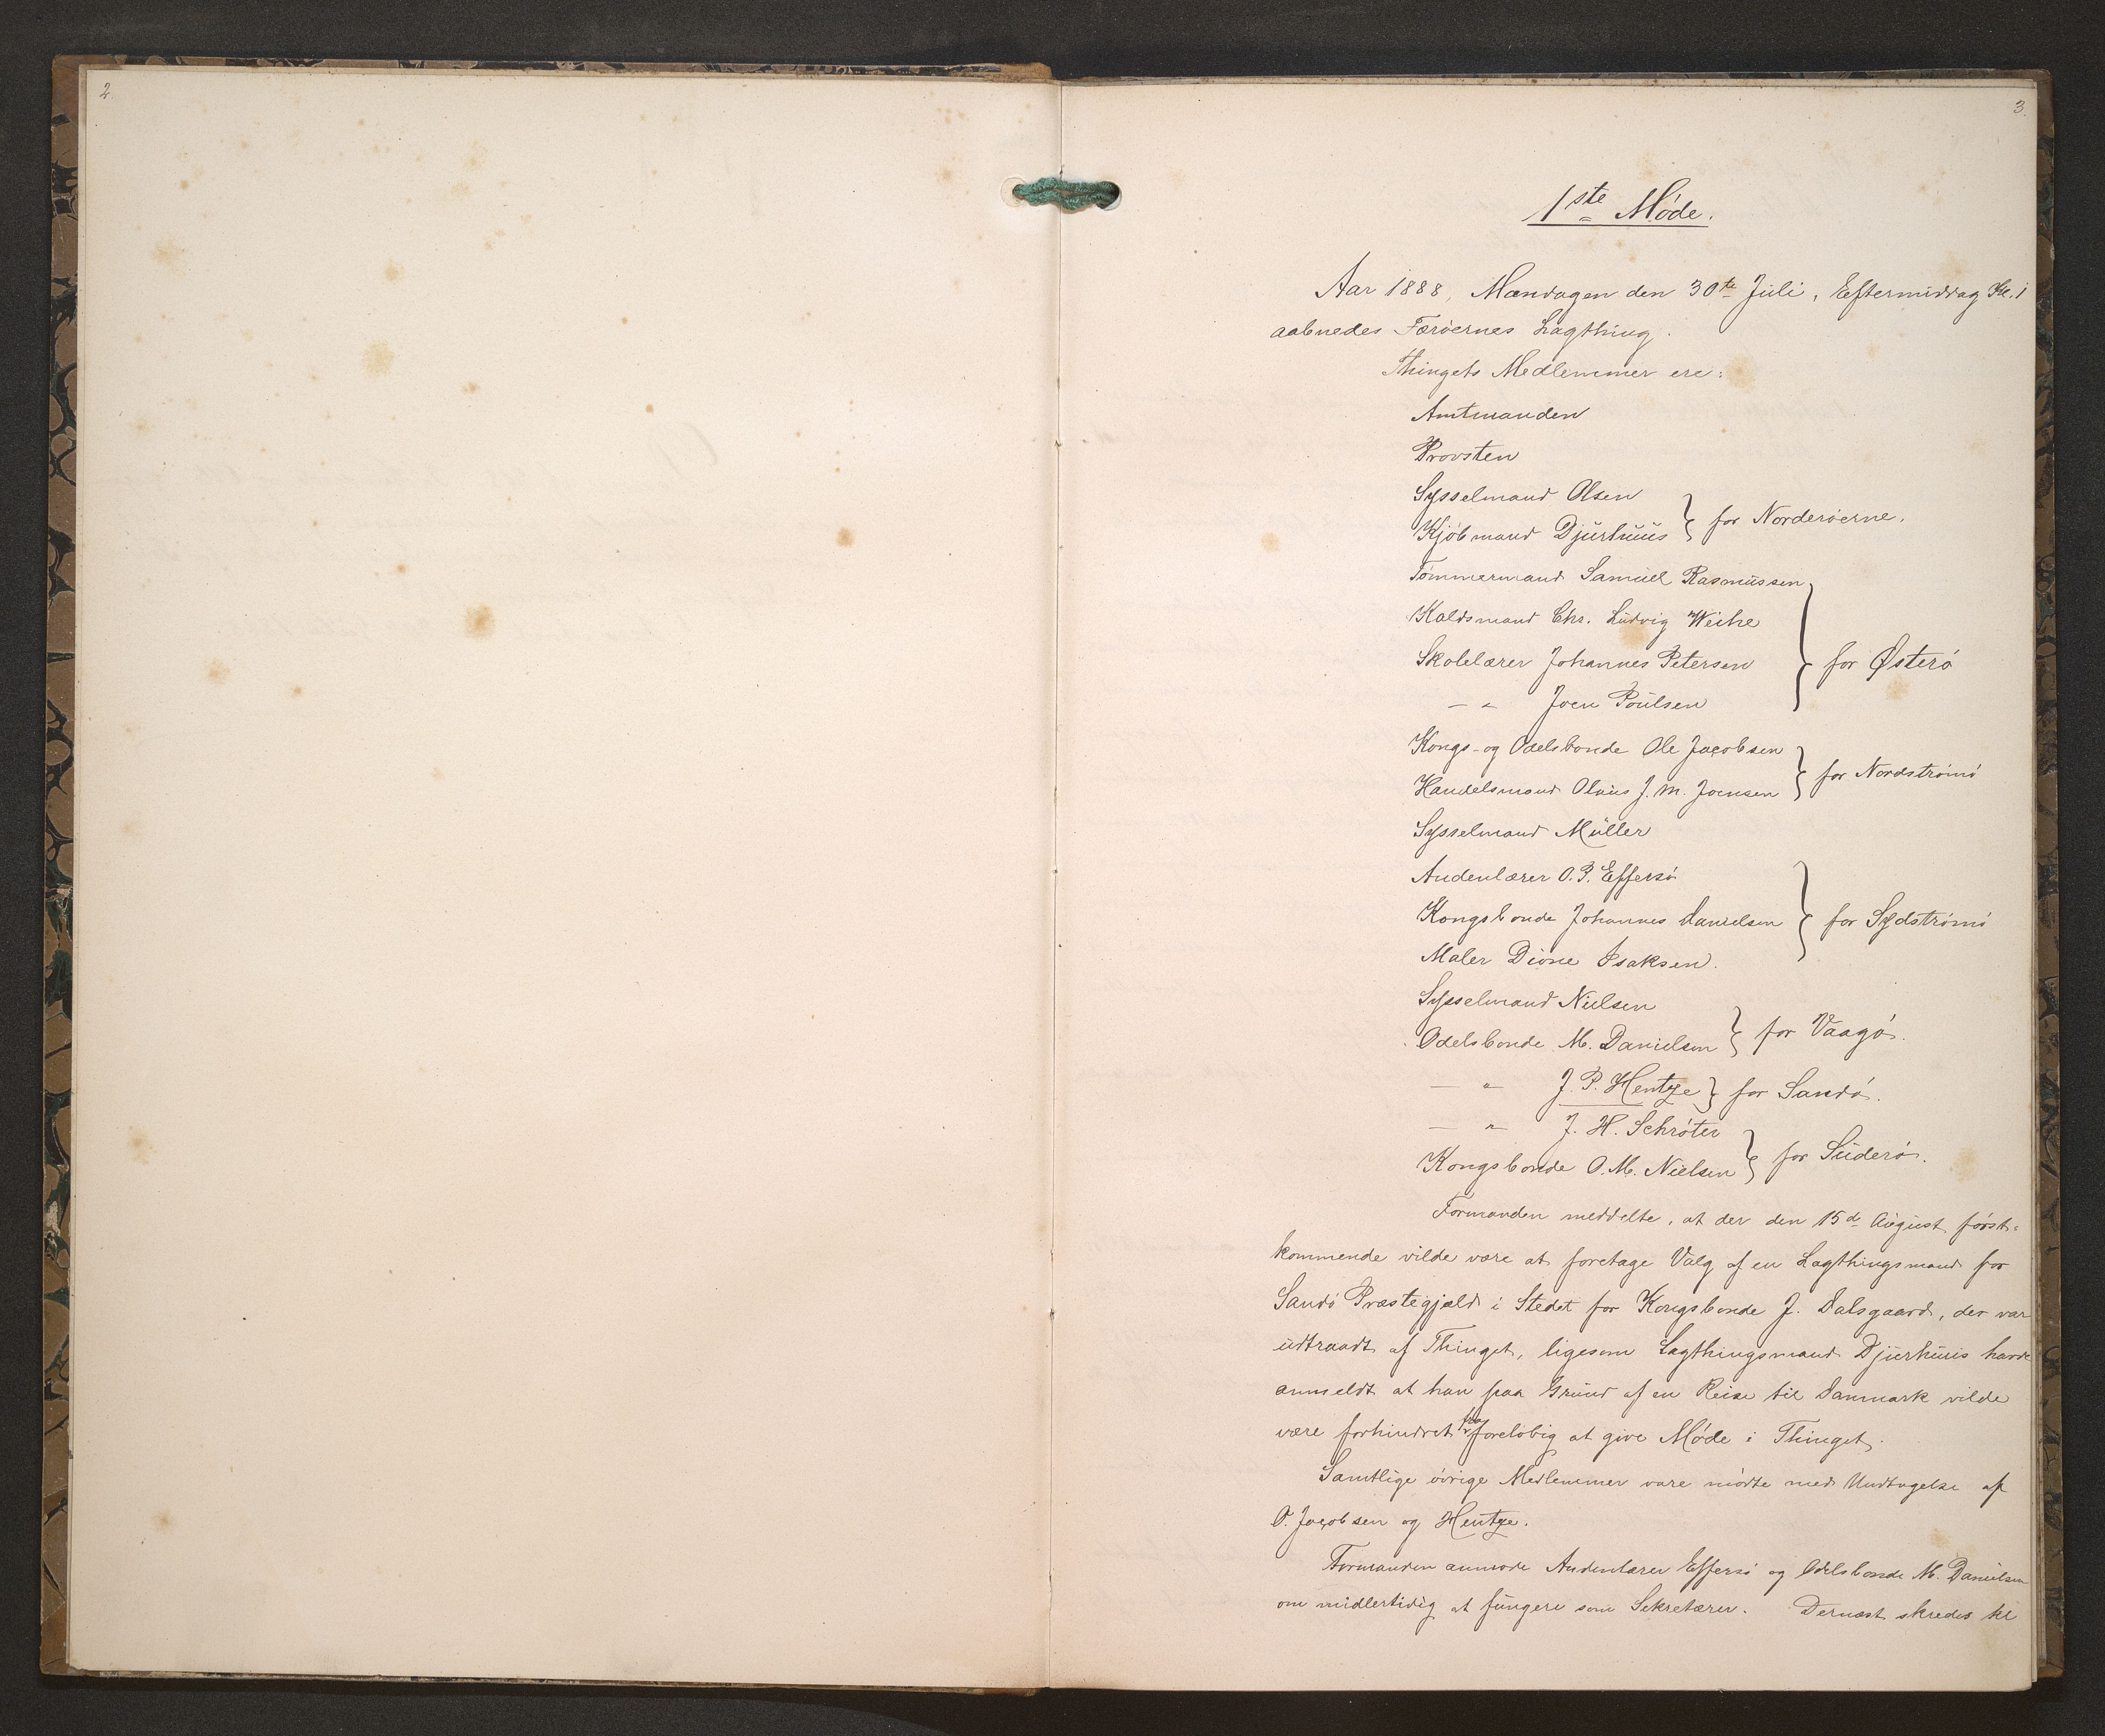 2.
3.
1ste Møde.
Aar 1888, Mandagen den 30te Juli, Eftermiddag Kl. 1
aabnedes Færøernes Lagthing.
Thingets Medlemmer ere:
Amtmanden
Provsten
Sysselmand Olsen
Kjøbmand Djurhuus } for Norderøerne.
Tømmermand Samuel Rasmussen
Kaldsmand Chr. Ludvig Weihe
Skolelærer Johannes Petersen } for Østerø
— " Joen Poulsen
Kongs- og Odelsbonde Ole Jacobsen
Handelsmand Olaus J. M. Joensen } for Nordstrømø
Sysselmand Müller
Andenlærer O. P. Effersø
Kongsbonde Johannes Danielsen } for Sydstrømø
Maler Dione Isaksen.
Sysselmand Nielsen
Odelsbonde M. Danielsen } for Vaagø.
— " J. P. Hentze } for Sandø.
— " J. H. Schrøter
Kongsbonde O. M. Nielsen } for Suderø.
Formanden meddelte, at der den 15de August først-
kommende vilde være at foretage Valg af en Lagthingsmand for
Sandø Præstegjæld i Stedet for Kongsbonde J. Dalsgaard, der var
udtraadt af Thinget, ligesom Lagthingsmand Djurhuus havde
anmeldt at han paa Grund af en Reise til Danmark vilde
være forhindret fra foreløbig at give Møde i Thinget.
Samtlige øvrige Medlemmer vare mødte med Undtagelse af
O. Jacobsen og Hentze.
Formanden anmode Andenlærer Effersø og Odelsbonde M. Danielsen
om midlertidig at fungere som Sekretærer. Dernæst skredes til